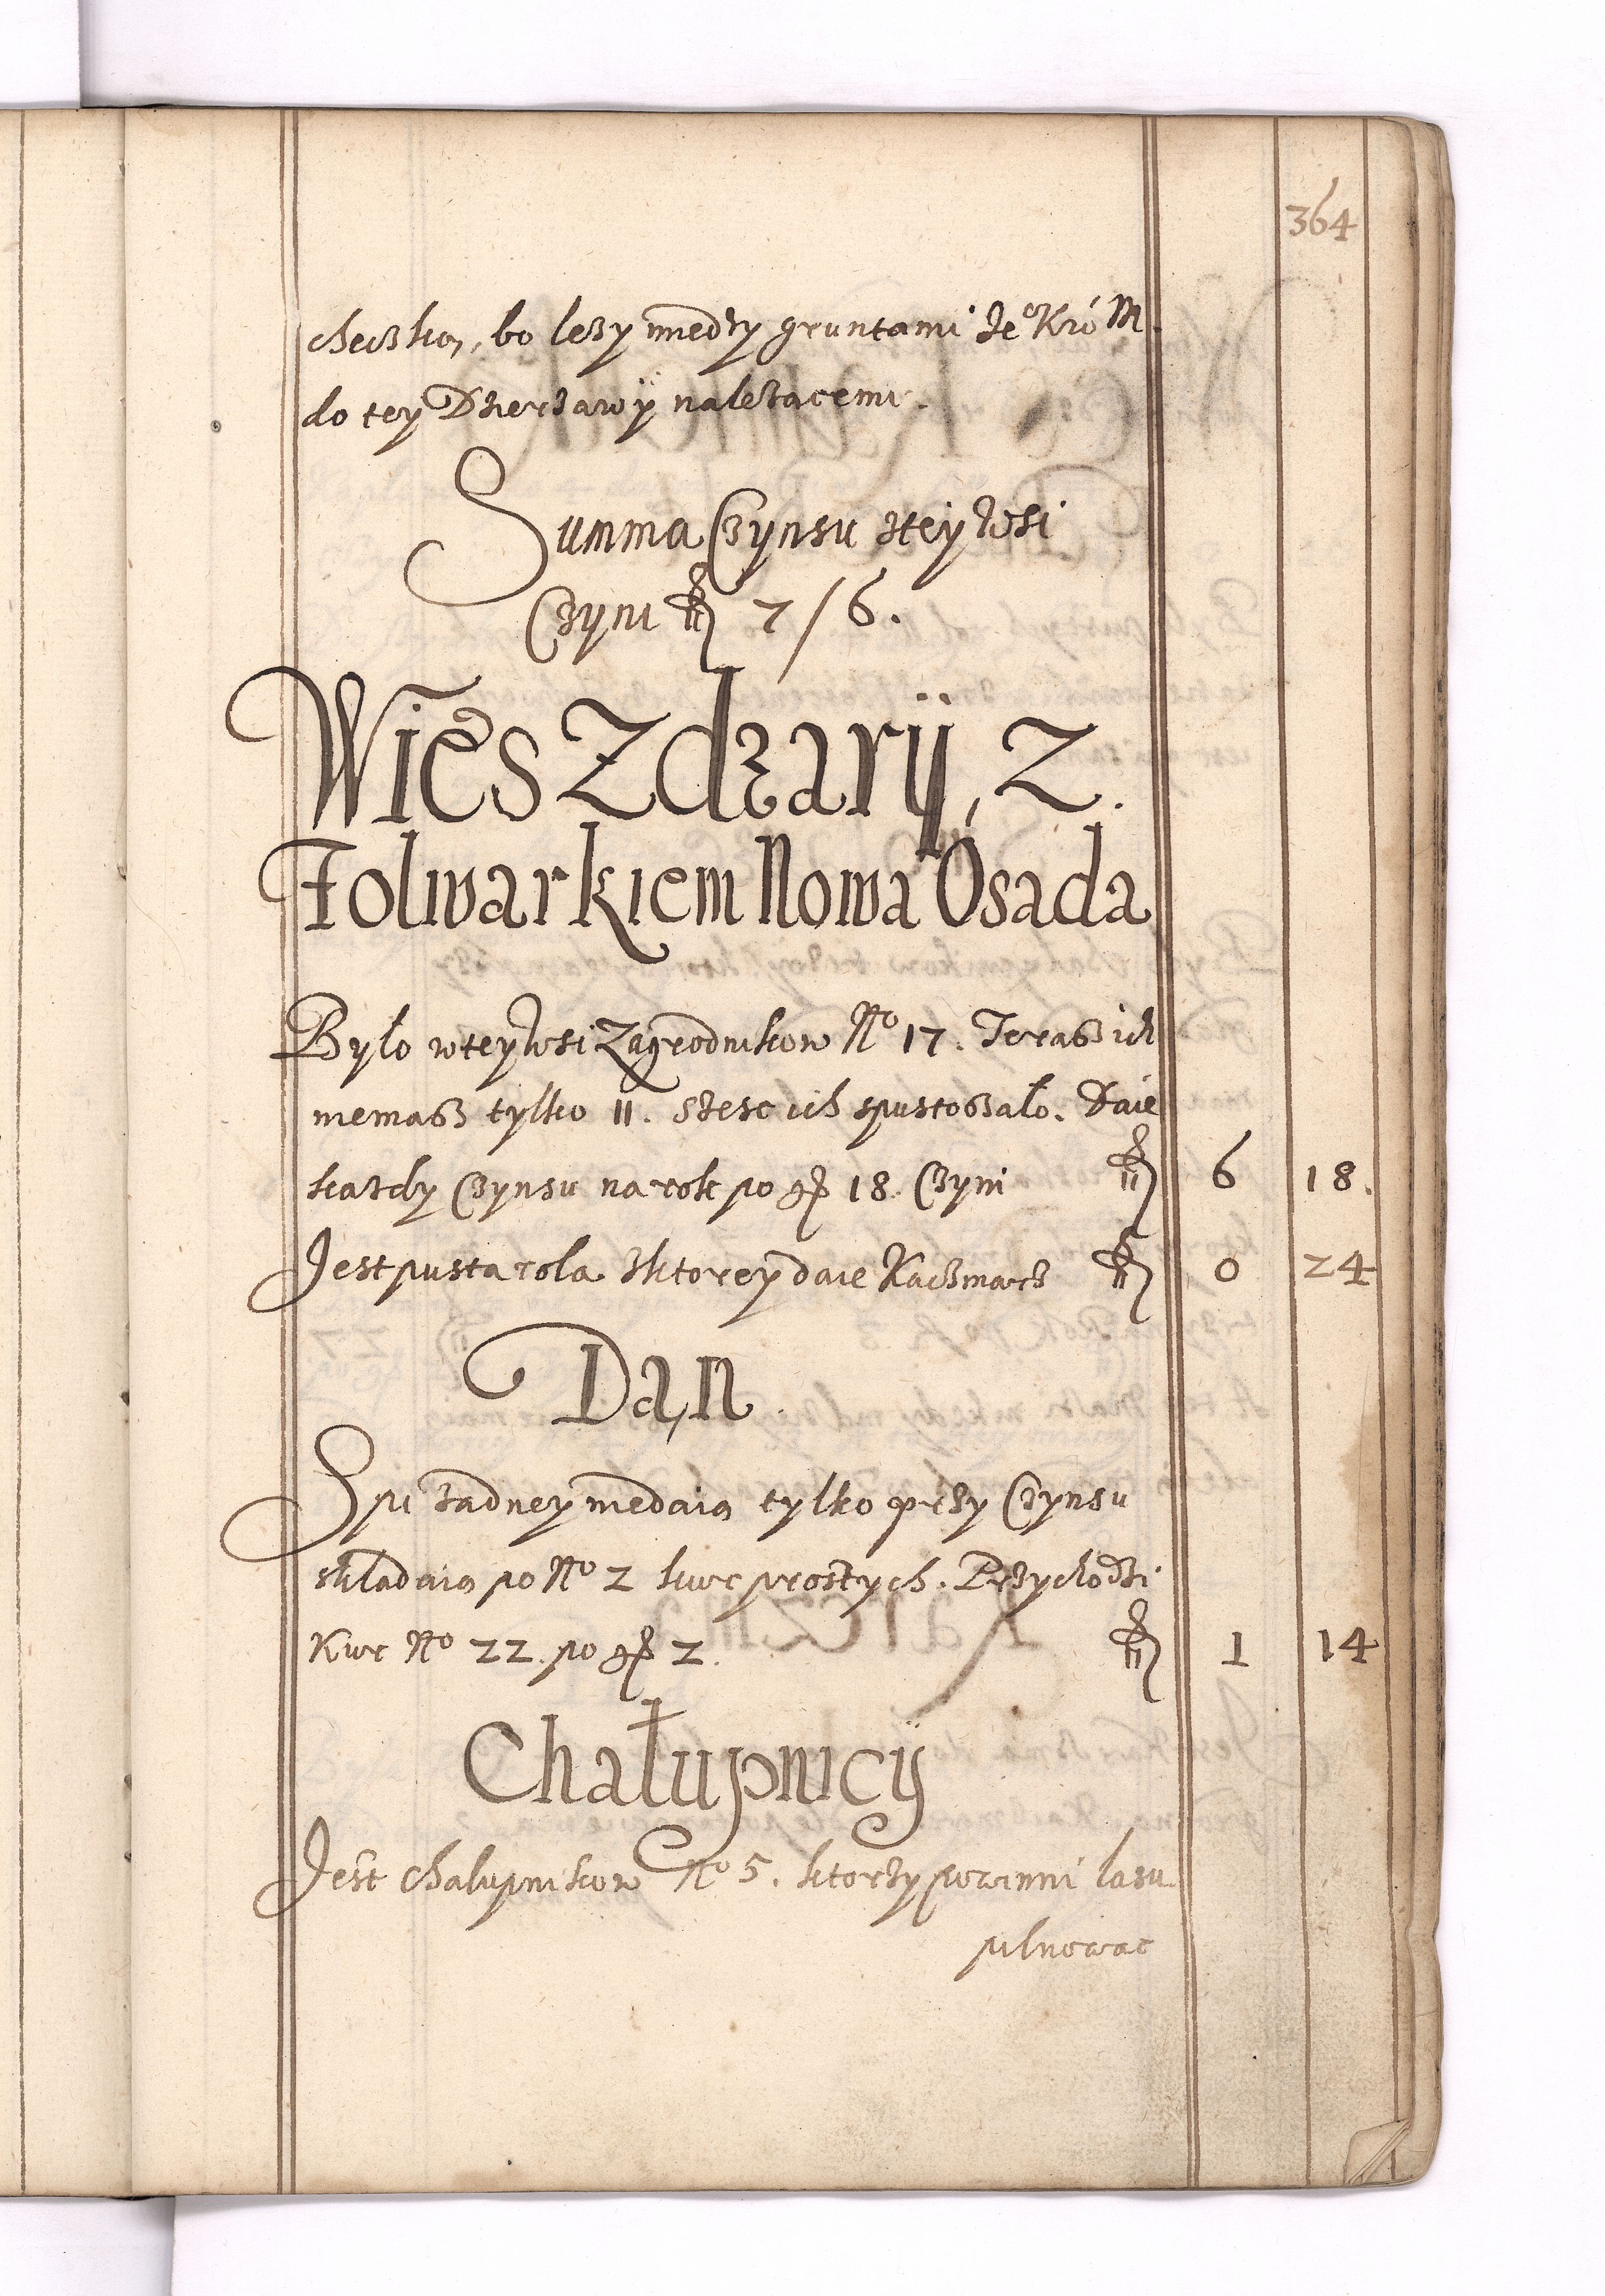 364
checzką, bo leży między gruntami Je° Kró M.
do tey Dzierżawÿ należacemi.
Summa Czynsu z tey Wsi
Czyni fl 7/6.
Wieś Zdżarÿ, z
Folwarkiem Nowa Osada
Było w tey Wsi Zagrodnikow No 17. Terasz ich
niemasz tylko 11. szesc ich spustoszało. Daie
każdy Czynsu na rok po gr 18. Czyni fl 6 18.
Jest pusta rola z ktorey daie Kaczmarz fl 0 24
Dań
Spi żadney niedaią tylko przy Czynsu
składaią po No 2 kur prostych. Przychodzi
Kur No 22. po gr 2. fl 1 14
Chałupnicÿ
Jest chalupnikow No 5. ktorzy powinni lasu
pilnowac